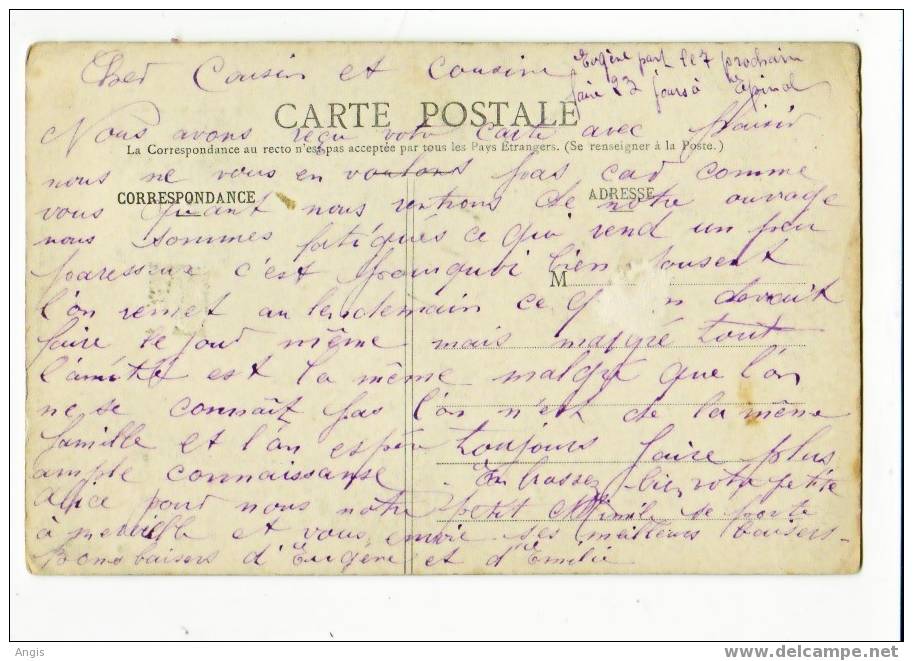 Cher Cousin et cousine
Eugène part le 7 prochain
faire 23 jours à Epinal
CARTE POSTALE
Nous avons reçu votre carte avec plaisir
La Correspondance au recto n'est pas acceptée par tous les Pays Étrangers. (Se renseigner à la Poste.)
nous ne vous en voulons pas car comme
CORRESPONDANCE
ADRESSE
vous quant nous rentrons de notre ouvrage
nous sommes fatigués ce qui rend un peu
paresseux c'est pourquoi bien souvent
M
l'on remet au lendemain ce devait
faire le jour même mais malgré tout
l'amitié est la même malgré que l'on
ne se connaît pas l'on n'est de la même
famille et l'on espère toujours faire plus
ample connaissanse Embrassez bien votre petite
Alice pour nous notre petit Mimile se porte
à merveille et vous envoie ses meilleurs baisers
Bons baisers d'Eugène et d'Emilie
Angis
www.delcampe.net